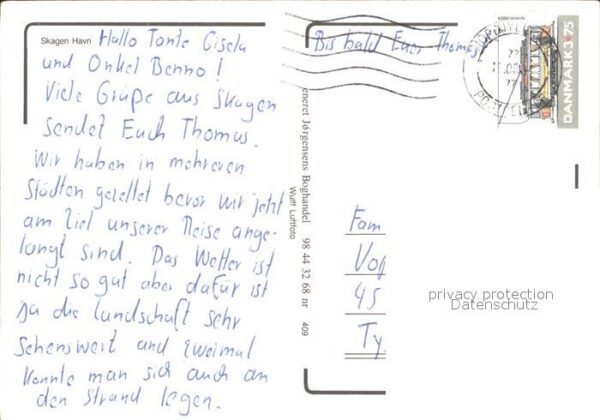 Skagen Havn
Hallo Tante Gisela
und Onkel Benno!
Viele Grüße aus Skagen
sendet Euch Thomas.
Wir haben in mehreren
Städten gezeltet bevor wir jetzt
am Ziel unserer Reise ange-
langt sind. Das Wetter ist
nicht so gut aber dafür ist
ja die Landschaft sehr
Sehenswert und zweimal
konnte man sich auch an
den Strand legen.
Bis bald Euer Thomas
eneret Jørgensens Boghandel 98 44 32 68 nr 409
Wulff Luftfoto
KØBENHAVN
DANMARK 3.75
Fam
45
Ty
privacy protection
Datenschutz